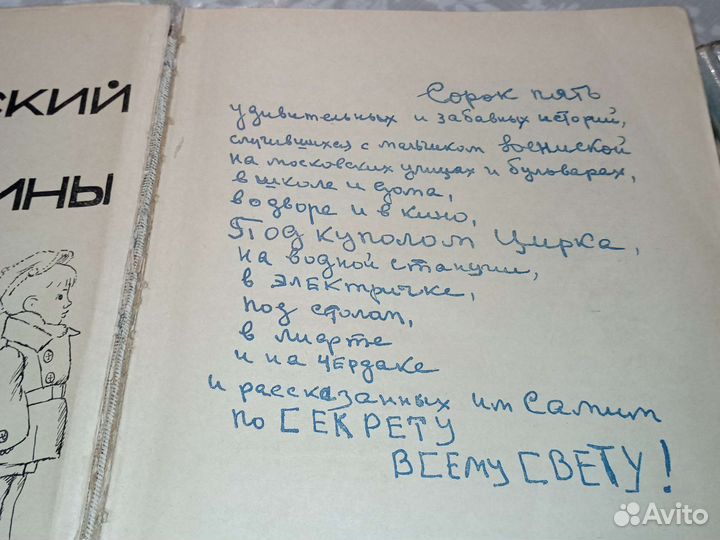 ский
ины
Сорок пять
удивительных и забавных историй,
случившихся с малышком Дениской
на московских улицах и бульварах,
в школе и дома,
во дворе и в кино,
под куполом цирка,
на водной станции,
в электричке,
под столом,
в лифте
и на чердаке
и рассказанных им самим
по СЕКРЕТУ
ВСЕМУ СВЕТУ!
Avito